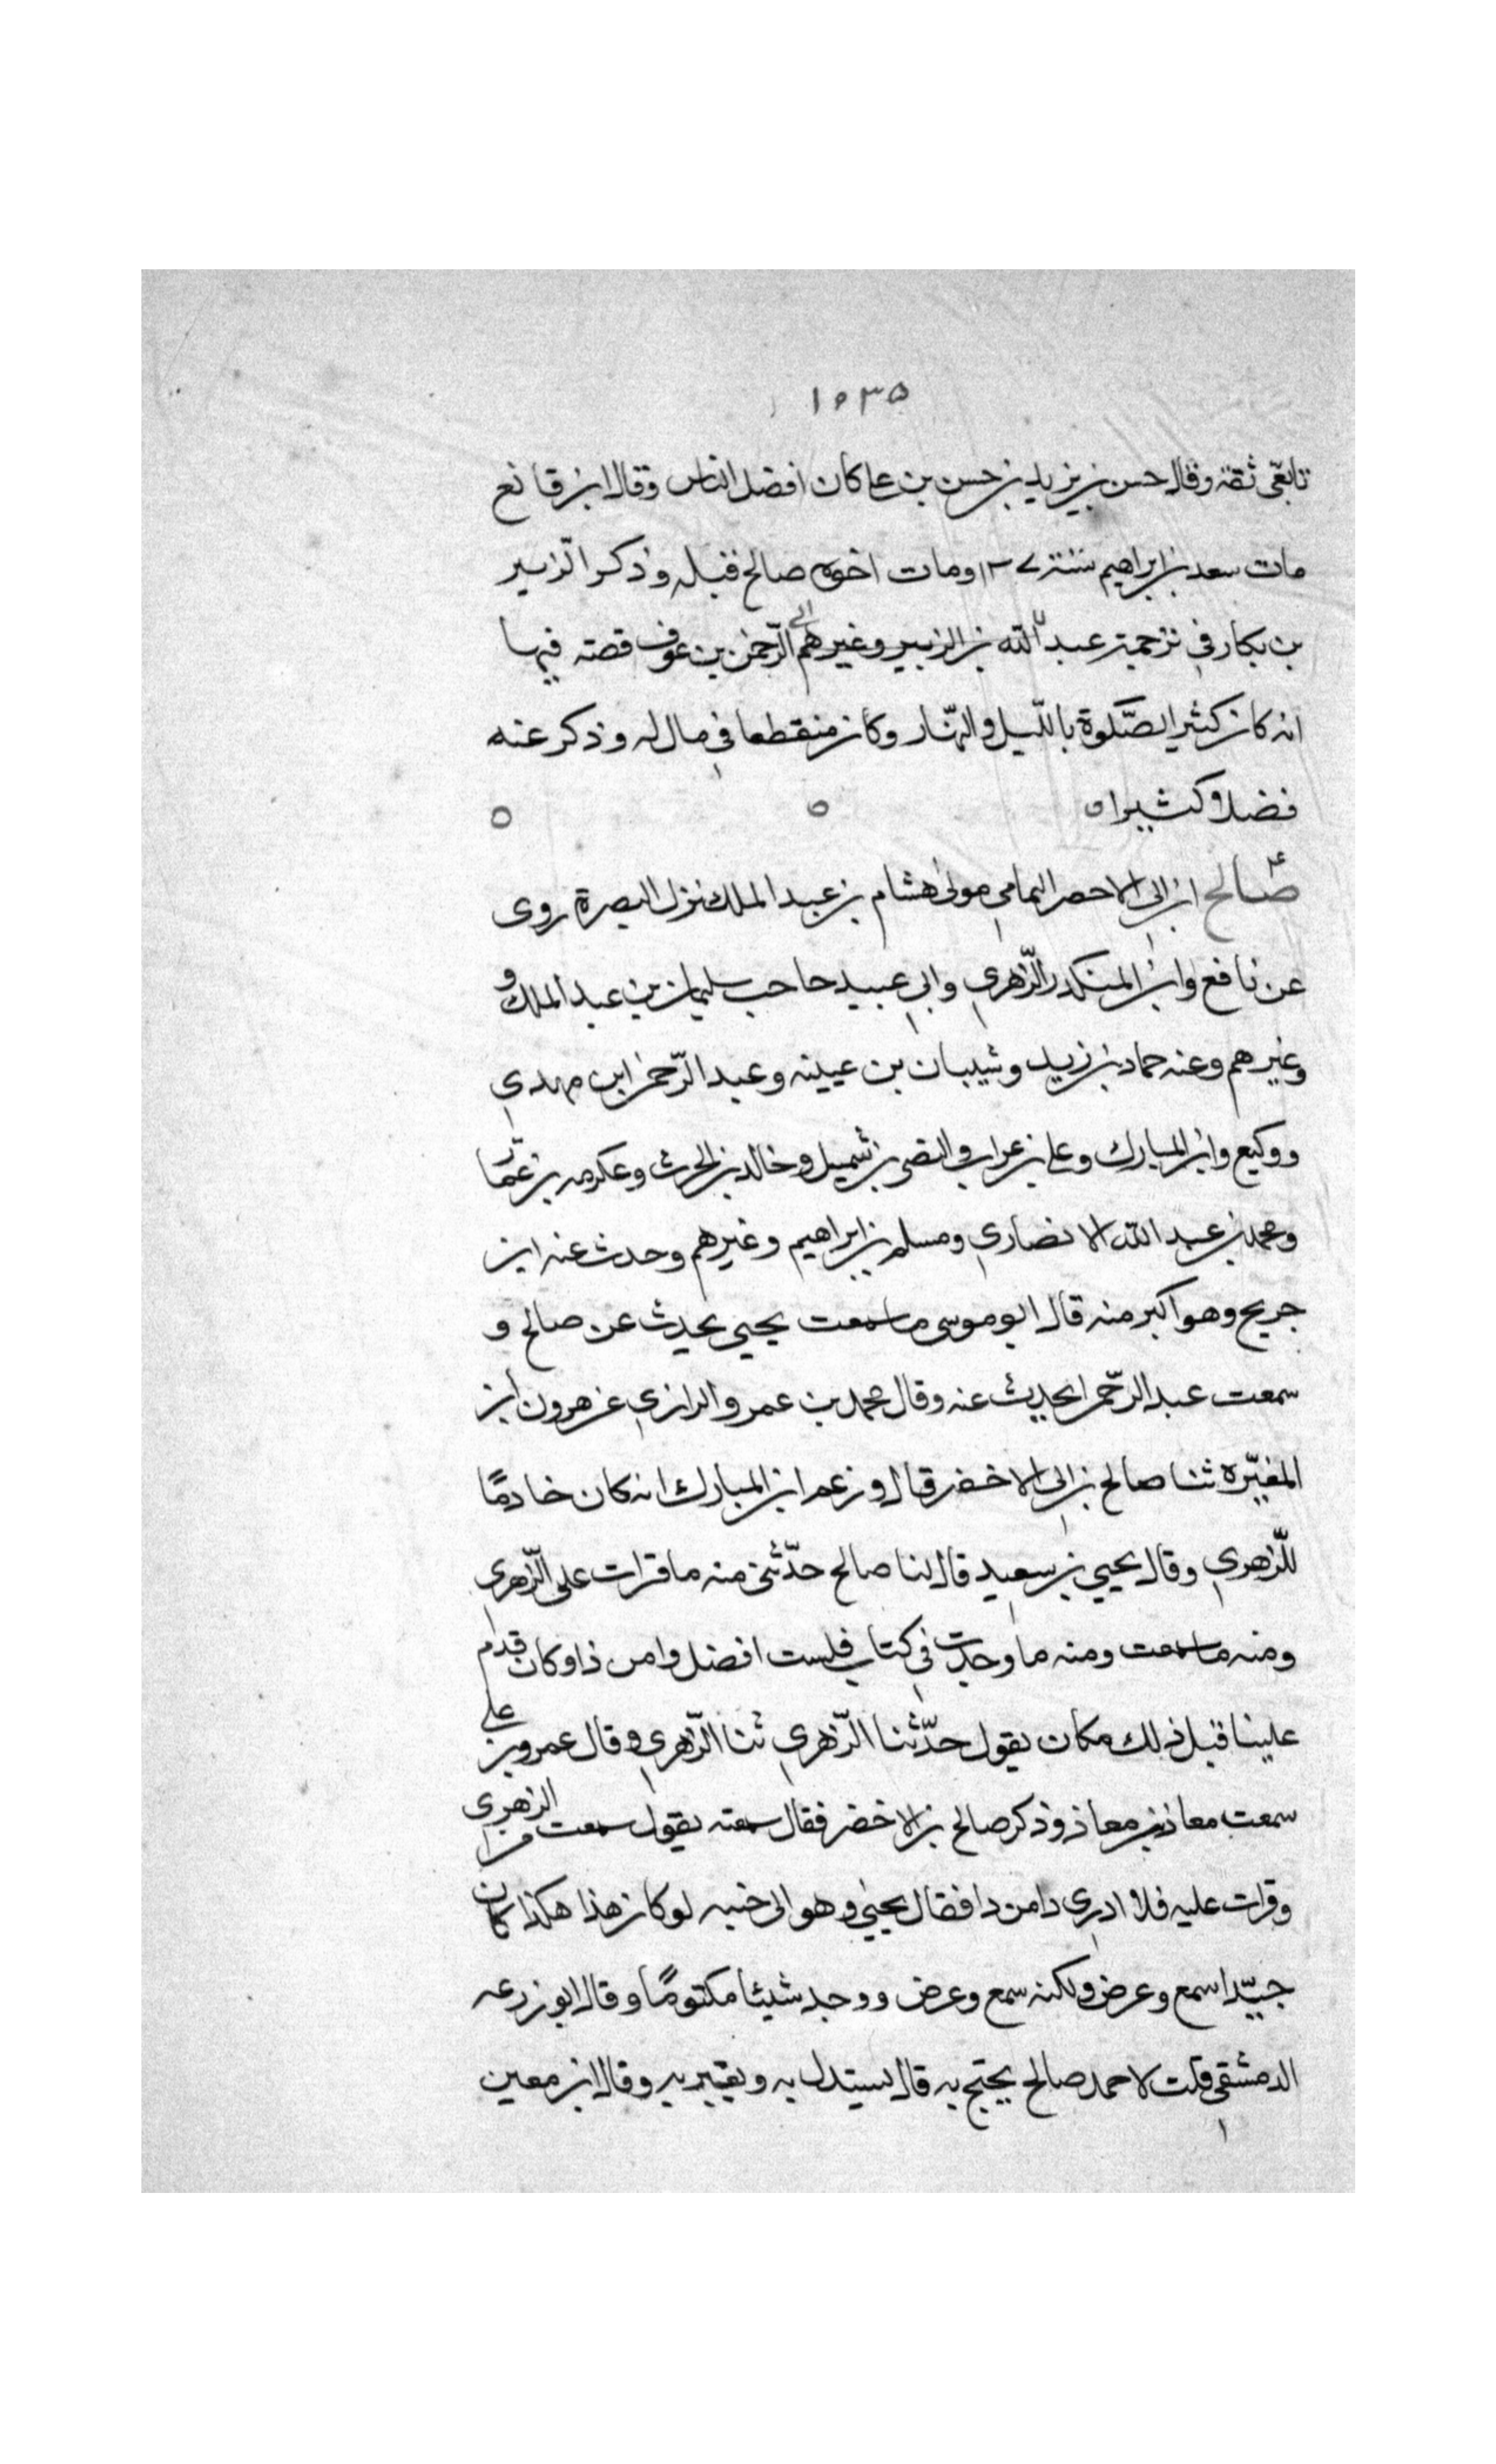 ١٥٣٥
تابعّى ثقة وقال حسن بن يزيد بن حسن بن على كان افضل الناس وقال ابن قانع
مات سعد بن ابراهيم سنة ١٢٧ ومات اخوه صالح قبله وذكر الزّبير
بن بكار في ترجمة عبد الله بن الزبير وغيرهم الى الرّحمن بن عوف قصته فيها
انه كان كثير الصّلوة باللّيل والنّهار وكان منقطعا في مال له وذكر عنه
فضلا وكثيرا ه ه ه
صالح ابن ابى الاحصر اليمامي مولى هشام بن عبد الملك نزل البصرة روى
عن نافع وابن المنكدر والزّهري وابي عبيد حاحب سليمان بن عبد الملك و
وغيرهم وعنه حماد بن زيد وشيبان بن عيينه وعبد الرّحمن ابن مهدي
ووكيع وابن المبارك وعلى بن عراب والنضى بن شميل وخالد بن الحرث وعكرمه بن عمّار
ومحمد بن عبد الله الانصاري ومسلم بن ابراهيم وغيرهم وحدث عنه ابن
جريج وهو اكبر منه قال ابو موسى ما سمعت يحيي يحدث عن صالح و
سمعت عبد الرّحمن يحديث عنه وقال محمد بن عمرو الرازي عن هرون ابن
المغيّره ثنا صالح بن ابى الاخضر قال وزعم ابن المبارك انه كان خادمًا
للزّهري وقال يحيي بن سعيد قال لنا صالح حدّثنى منه ما قرات على الزّهرى
ومنه ما سمعت ومنه ما وحدت في كتاب فلست افضل وامن ذا وكان قدم
علينا قبل ذلك مكان يقول حدّثنا الزّهري ثنا الزّهري وقال عمرو بن على
سمعت معاذ بن معاذ وذكر صالح بن الاخضر فقال سمعته يقول سمعت من الزهرى
وقرات عليه فلا ادرى دامن دا فقال يحيى وهو الى خنبه لو كان هذا هكذا كان
جيّدا سمع وعرض ولكنه سمع وعرض ووجد شيئا مكتومًا وقال ابو زرعه
الدمشقي قلت لاحمد صالح يحتج به قال يستدل به ويعتبر به وقال ابن معين